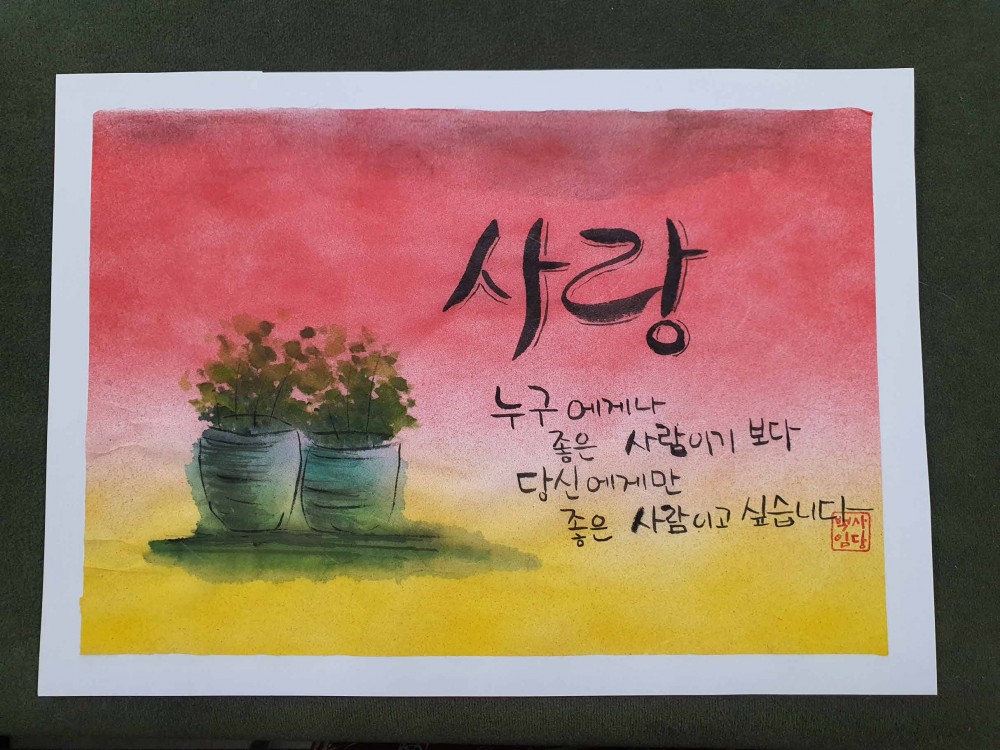 사랑
누구에게나
좋은 사람이기 보다
당신에게만
좋은 사람이고 싶습니다
백사
임당